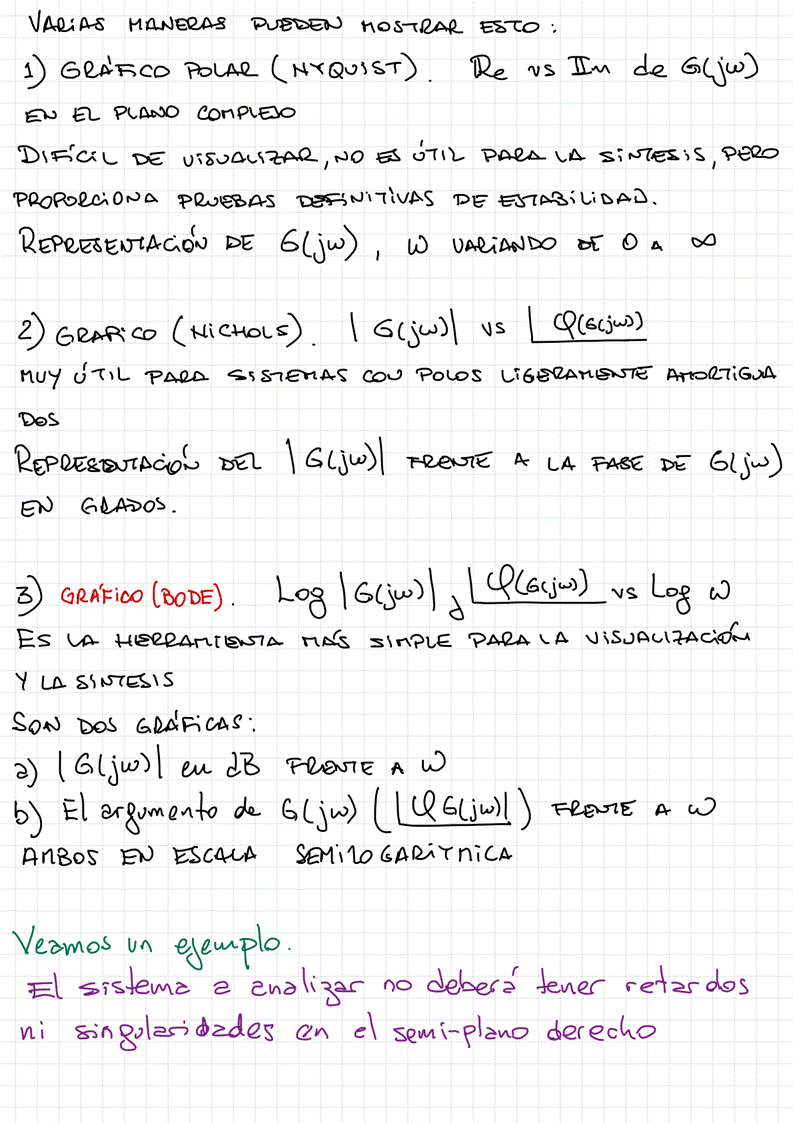 VARIAS MANERAS PUEDEN MOSTRAR ESTO:
1) GRÁFICO POLAR (NYQUIST). Re vs Im de G(jω)
EN EL PLANO COMPLEJO
DIFÍCIL DE VISUALIZAR, NO ES ÚTIL PARA LA SINTESIS, PERO
PROPORCIONA PRUEBAS DEFINITIVAS DE ESTABILIDAD.
REPRESENTACIÓN DE G(jω), ω VARIANDO DE 0 A ∞
2) GRAFICO (NICHOLS). |G(jω)| vs ⌊φ(G(jω))
MUY ÚTIL PARA SISTEMAS CON POLOS LIGERAMENTE AMORTIGUA
DOS
REPRESENTACIÓN DEL |G(jω)| FRENTE A LA FASE DE G(jω)
EN GRADOS.
3) GRÁFICO (BODE). Log |G(jω)| y ⌊φ(G(jω)) vs Log ω
ES LA HERRAMIENTA MAS SIMPLE PARA LA VISUALIZACIÓN
Y LA SINTESIS
SON DOS GRÁFICAS:
a) |G(jω)| en dB FRENTE A ω
b) El argumento de G(jω) (⌊φG(jω)|) FRENTE A ω
AMBOS EN ESCALA SEMILOGARITMICA
Veamos un ejemplo.
El sistema a analizar no deberá tener retardos
ni singularidades en el semi-plano derecho